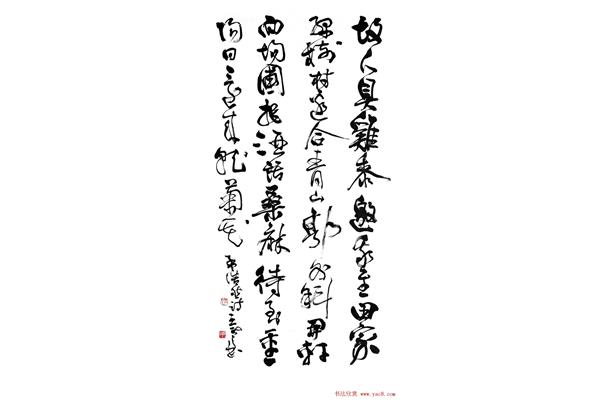 故人具雞黍邀我至田家
綠樹村邊合青山郭外斜開軒
面場圃把酒話桑麻待到重
陽日還來就菊花
孟浩然诗
书法欣赏 www.yac8.com